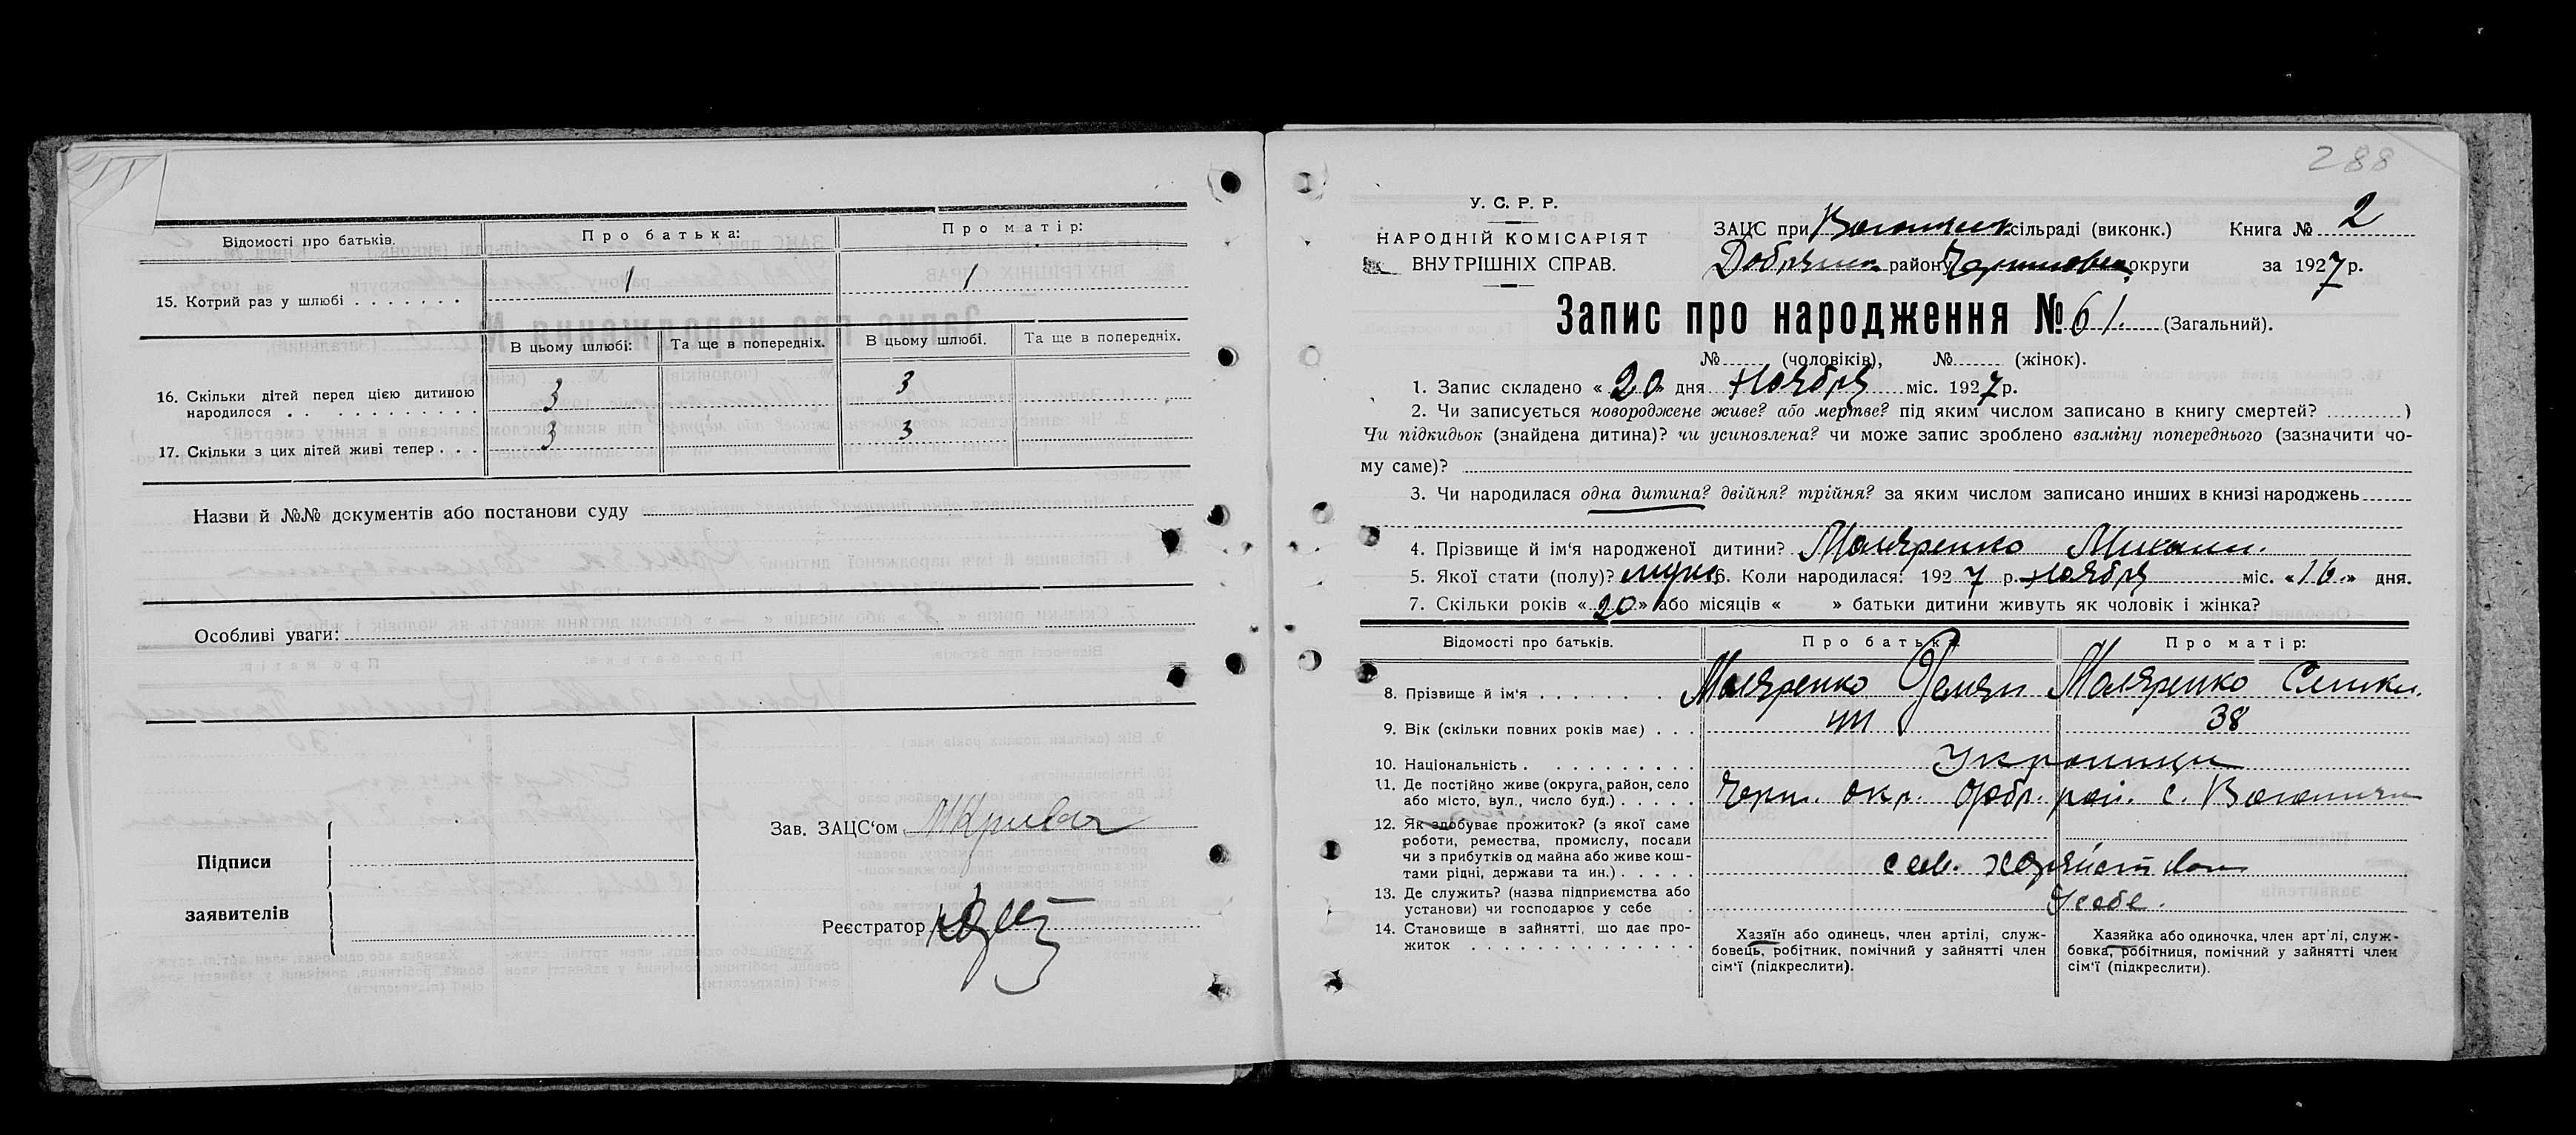 Відомості про батьків.
Про батька:
Про матір:
15. Котрий раз у шлюбі
1
1
В цьому шлюбі:
Та ще в попередніх.
В цьому шлюбі.
Та ще в попередніх.
16. Скільки дітей перед цією дитиною
народилося
3
3
17. Скільки з цих дітей живі тепер
3
3
Назви й №№ документів або постанови суду
Особливі уваги:
Підписи
заявителів
Зав. ЗАЦС'ом
Реєстратор
288
У. С. Р. Р.
НАРОДНІЙ КОМІСАРІЯТ
ВНУТРІШНІХ СПРАВ.
ЗАЦС при сільраді (виконк.) Книга № 2
Добрянск. району округи за 1927 р.
Запис про народження № 61. (Загальний).
№ (чоловіків), № (жінок).
1. Запис складено «20» дня Ноября міс. 1927 р.
2. Чи записується новороджене живе? або мертве? під яким числом записано в книгу смертей? )
Чи підкидьок (знайдена дитина)? чи усиновлена? чи може запис зроблено взаміну попереднього (зазначити чо-
му саме)?
3. Чи народилася одна дитина? двійня? трійня? за яким числом записано инших в книзі народжень
4. Прізвище й ім'я народженої дитини? Маляренко Михаил.
5. Якої стати (полу)? муж. 6. Коли народилася: 1927 р. Ноября міс. «16» дня.
7. Скільки років «20» або місяців « » батьки дитини живуть як чоловік і жінка?
Відомості про батьків.
Про батька
Про матір:
8. Прізвище й ім'я
Маляренко Демян
Маляренко
9. Вік (скільки повних років має)
38
10. Національність
Украинци
11. Де постійно живе (округа, район, село
або місто, вул., число буд.)
Черн. окр. Добр. рай. с.
12. Як здобуває прожиток? (з якої саме
роботи, ремества, промислу, посади
чи з прибутків од майна або живе кош-
тами рідні, держави та ин.)
сель. хозяйством
13. Де служить? (назва підприємства або
установи) чи господарює у себе
У себе.
14. Становище в зайнятті, що дає про-
житок
Хазяїн або одинець, член артілі, служ-
бовець, робітник, помічний у зайнятті член
сім'ї (підкреслити).
Хазяйка або одиночка, член арт'лі, служ-
бовка, робітниця, помічний у зайнятті член
сім'ї (підкреслити).